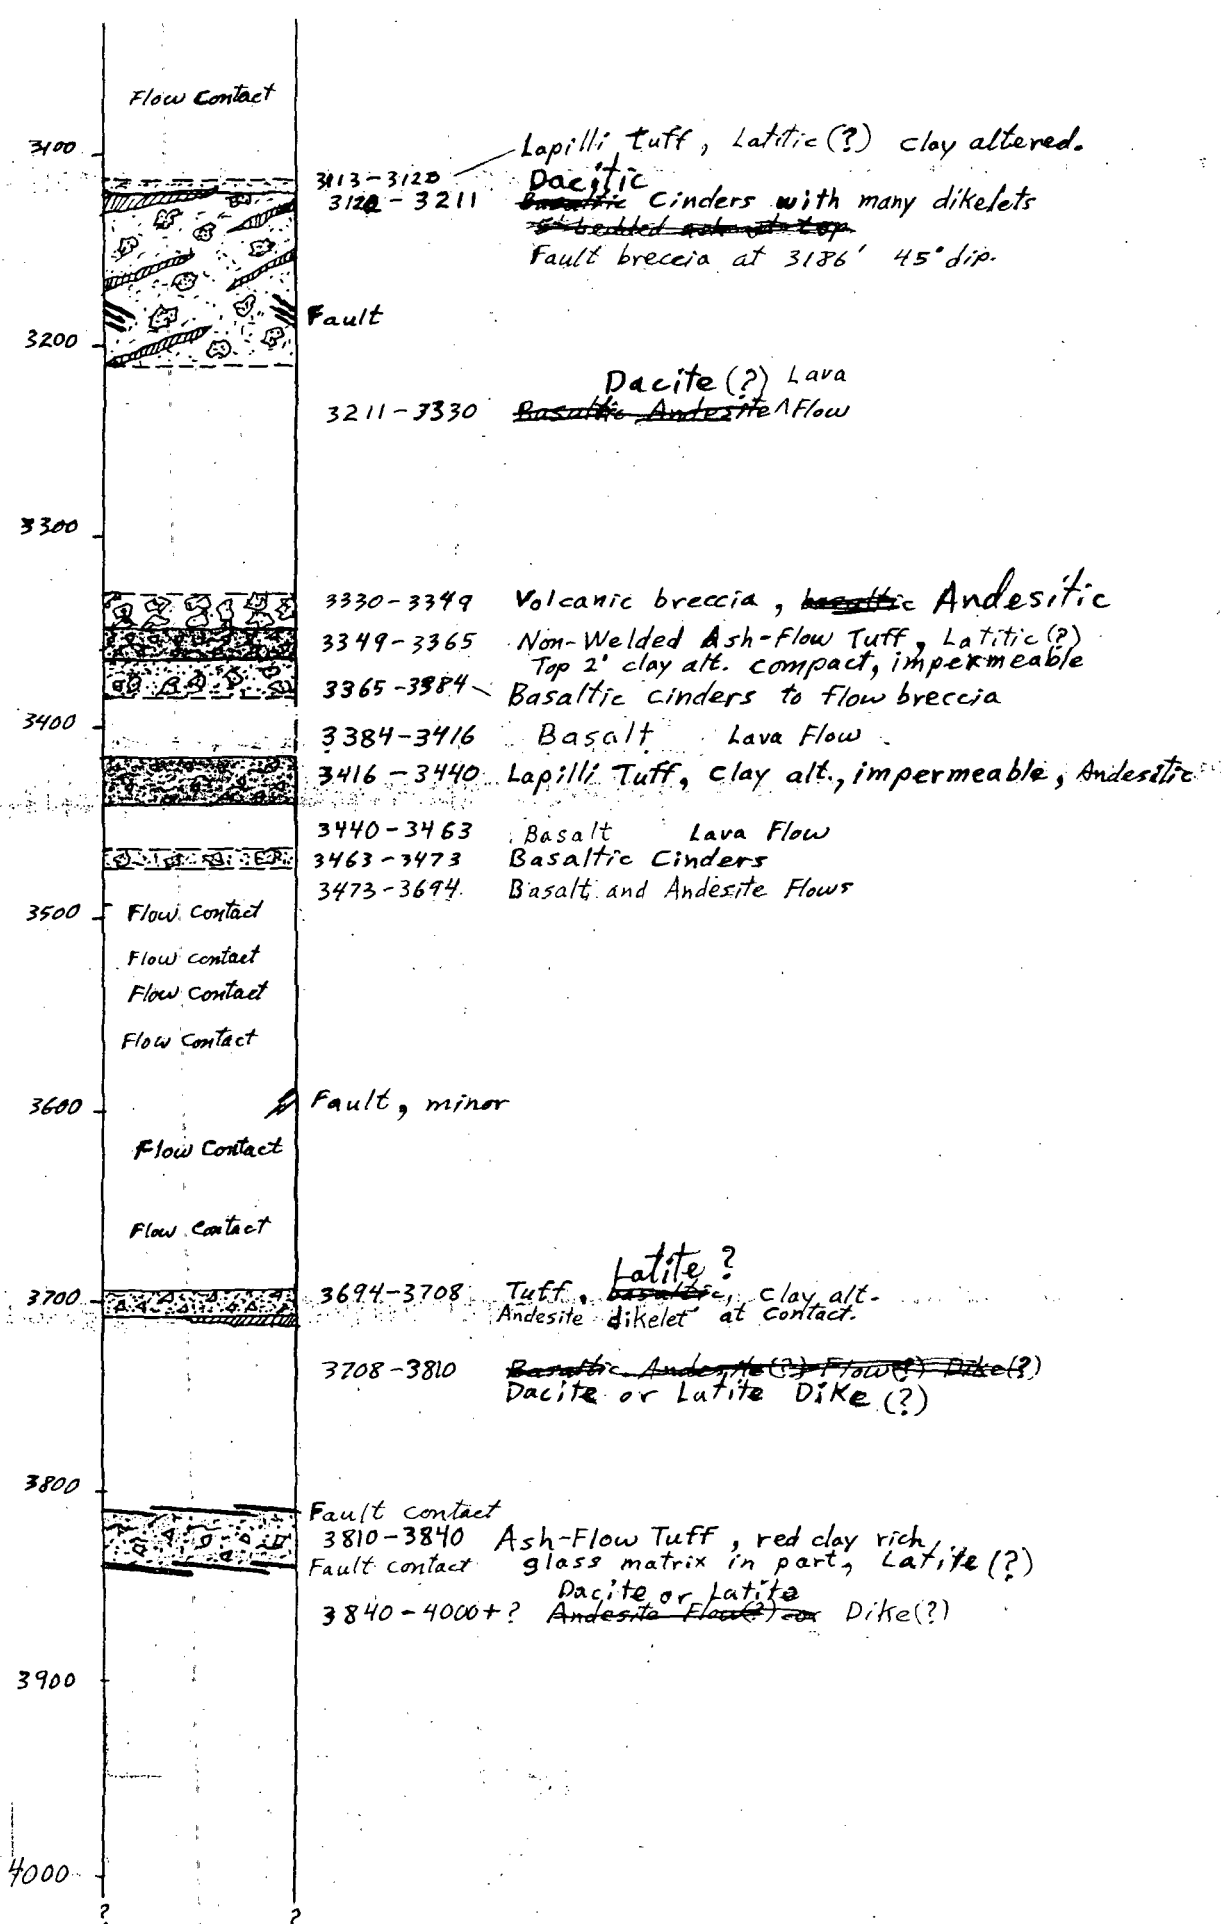 Flow Contact
3100
Lapilli Tuff, Latitic(?) clay altered.
3113-3120
Dacitic
3120-3211 Basaltic Cinders with many dikelets
5' bedded ash at top
Fault breccia at 3186' 45° dip.
Fault
3200
Dacite(?) Lava
3211-3330 Basaltic Andesite ^ Flow
3300
3330-3349 Volcanic breccia, basaltic Andesitic
3349-3365 Non-Welded Ash-Flow Tuff, Latitic(?)
Top 2' clay alt. compact, impermeable
3365-3384 Basaltic cinders to flow breccia
3400
3384-3416 Basalt Lava Flow
3416-3440 Lapilli Tuff, clay alt., impermeable, Andesitic
3440-3463 Basalt Lava Flow
3463-3473 Basaltic Cinders
3473-3694 Basalt and Andesite Flows
3500 Flow Contact
Flow contact
Flow Contact
Flow Contact
3600 Fault, minor
Flow Contact
Flow Contact
Latite?
3700 3694-3708 Tuff, basaltic, clay alt.
Andesite dikelet at contact.
3708-3810 Basaltic Andesite(?) Flow(?) Dike(?)
Dacite or Latite Dike(?)
3800
Fault contact
3810-3840 Ash-Flow Tuff, red clay rich,
Fault contact glass matrix in part, Latite(?)
Dacite or Latite
3840-4000+? Andesite Flow(?) or Dike(?)
3900
4000
? ?